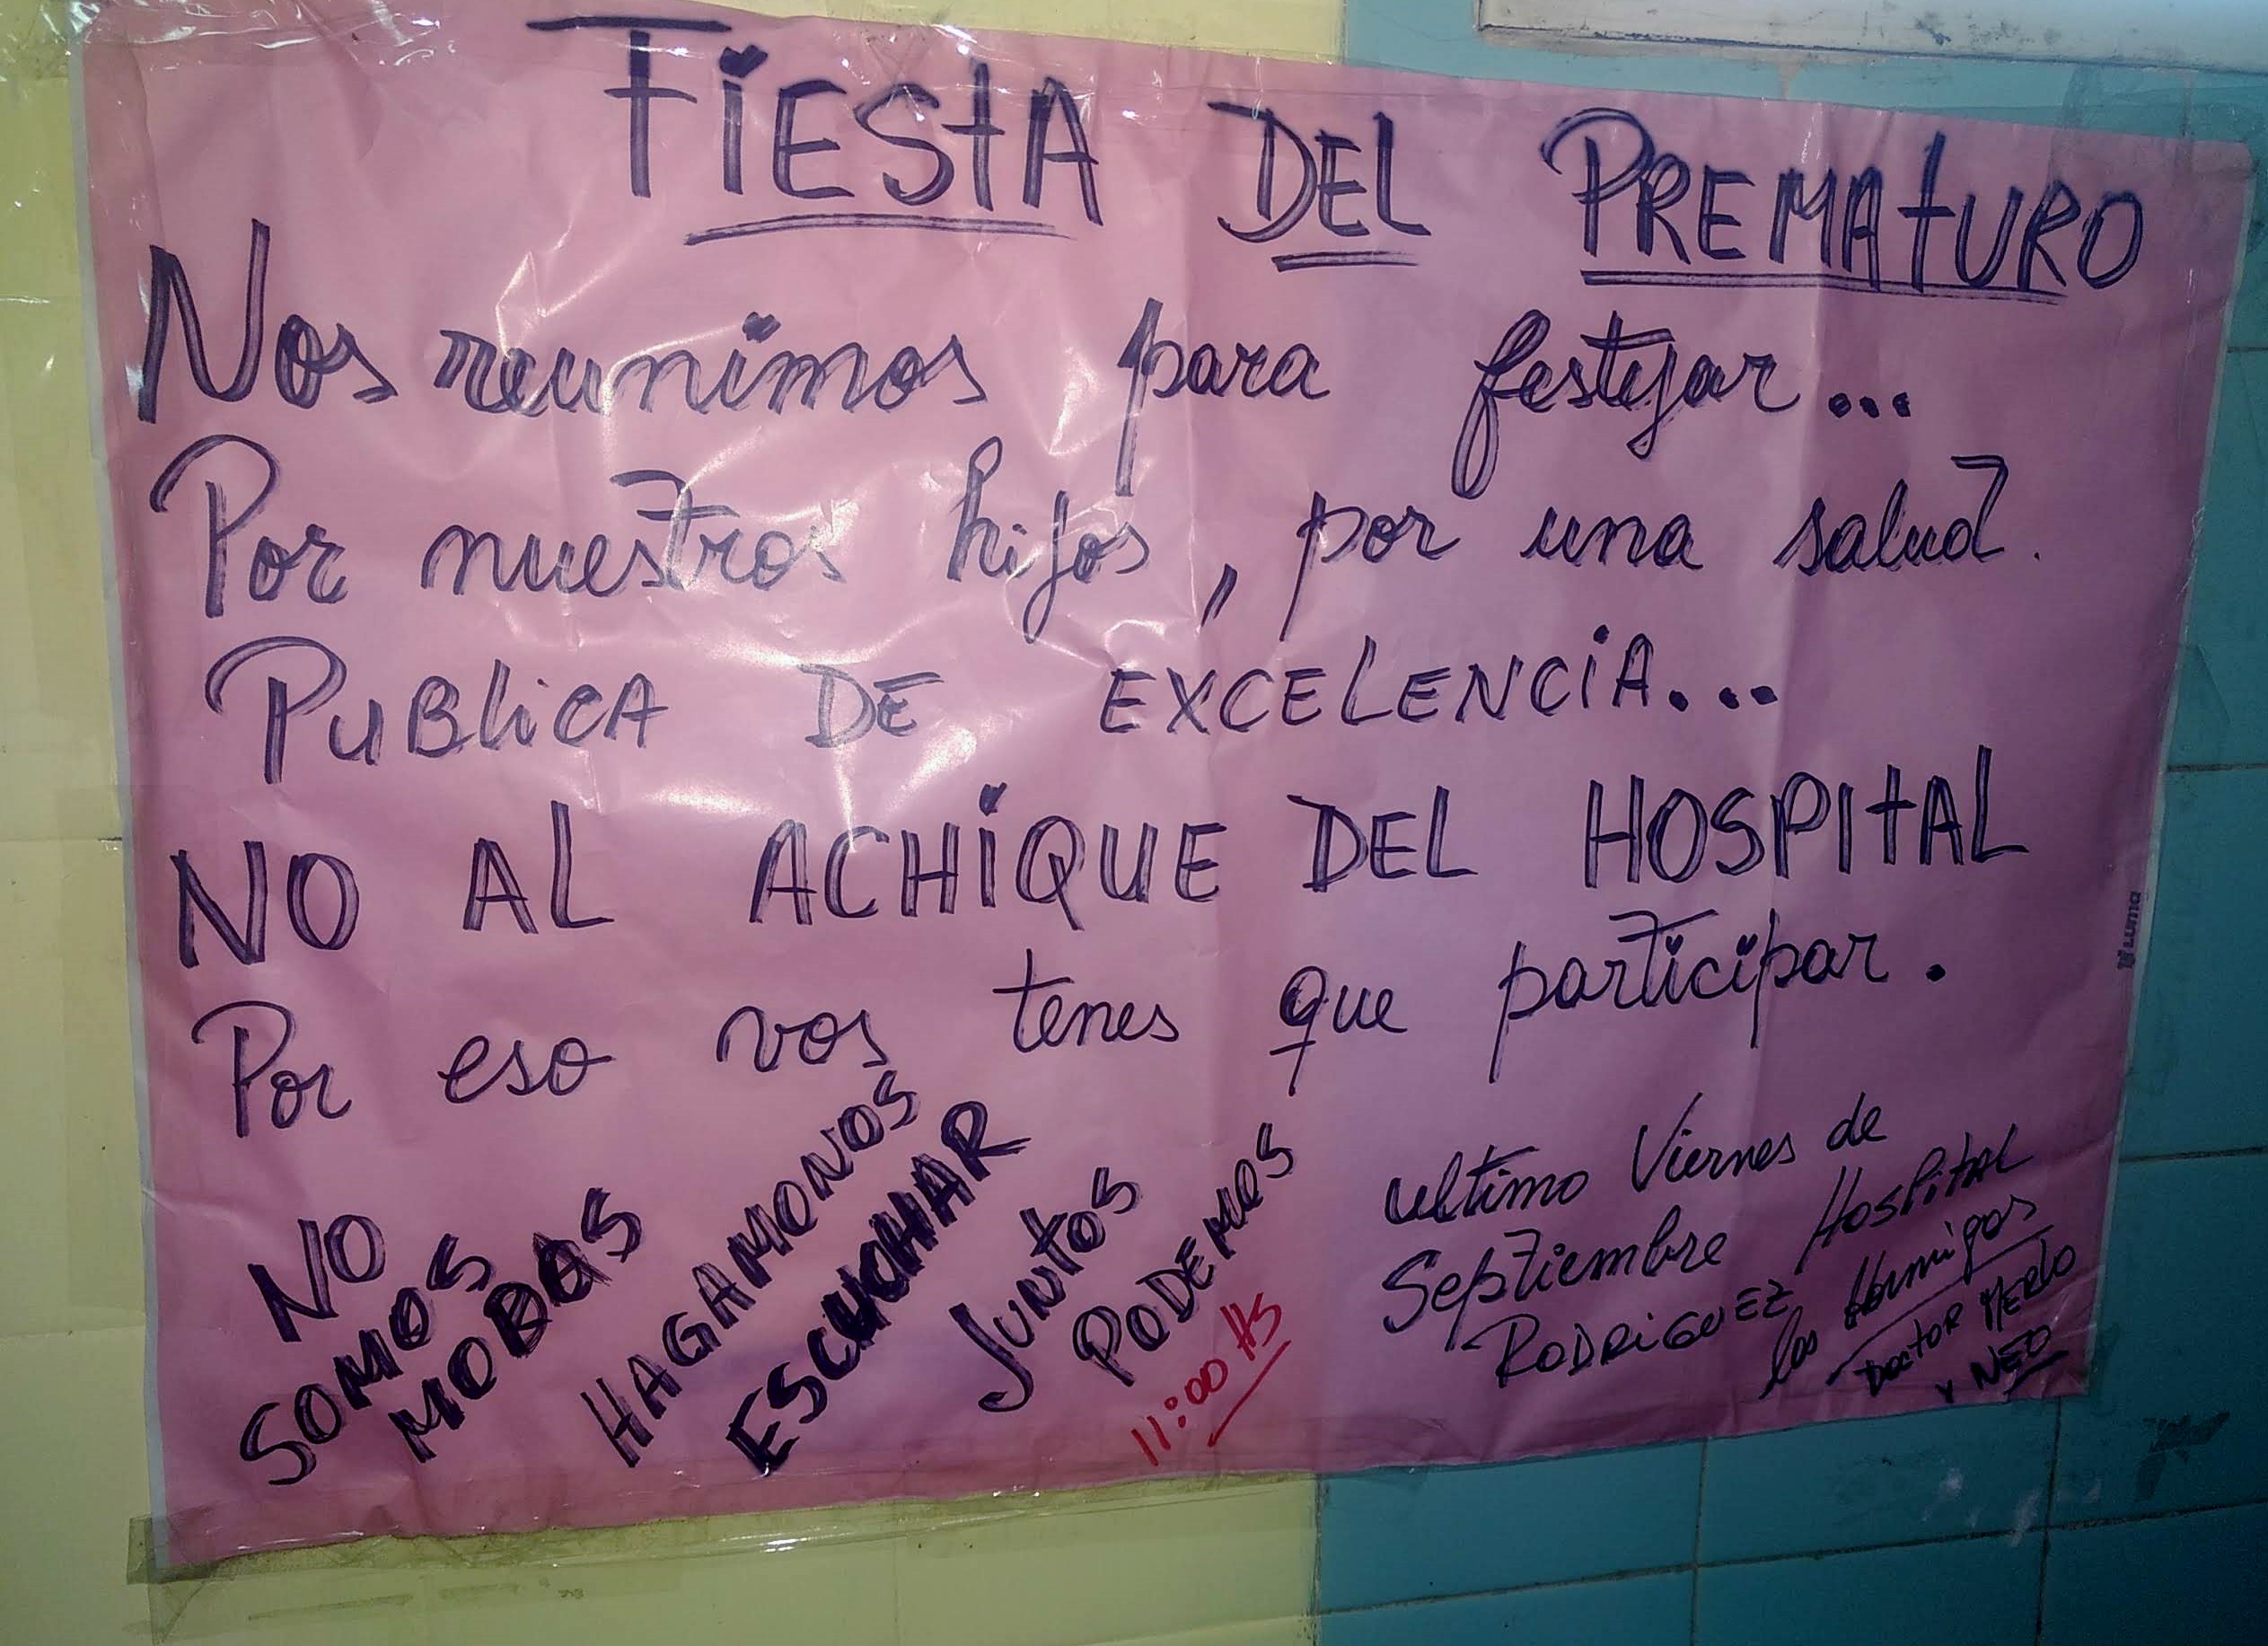 FiESTA DEL PREMATURO
Nos reunimos para festejar...
Por nuestros hijos, por una salud.
PUBLiCA DE EXCELENCiA...
NO AL ACHiQUE DEL HOSPITAL
Por eso vos tenes que participar.
NO
SOMOS
MOBAS
HAGAMONOS
ESCUCHAR
JUNTOS
PODEMOS
11:00 HS
ultimo Viernes de
Septiembre Hospital
RODRiGUEZ las Hormigas
DOCTOR MERLO
Y NEO
Luma